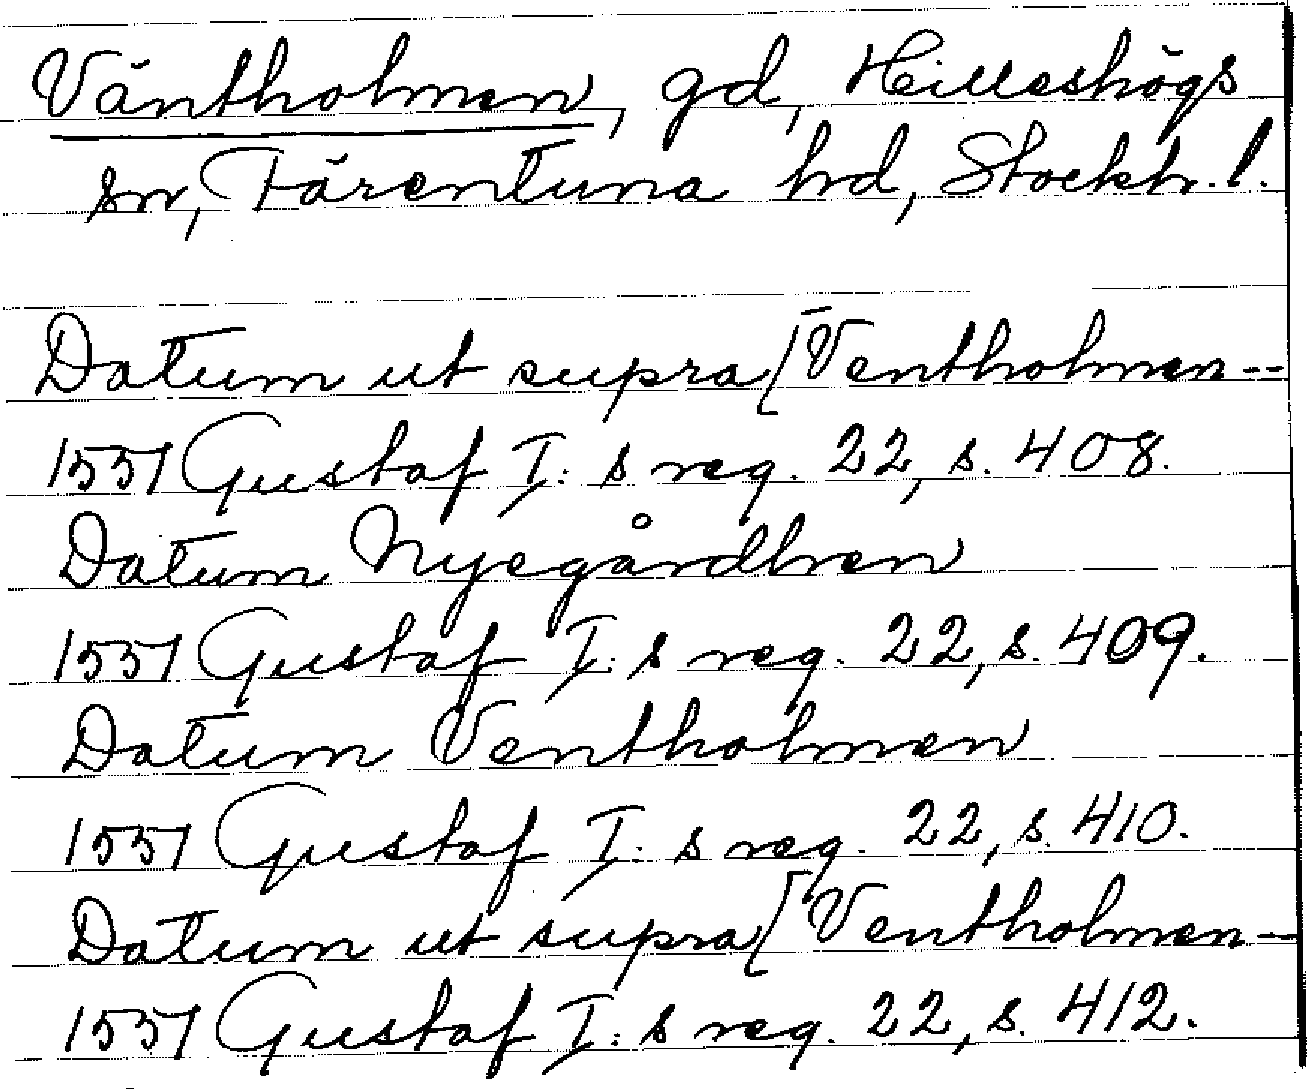 Väntholmen, gd, Hilleshögs
sn, Färentuna hd, Stockh. l.
Datum ut supra [Ventholmen --
1551 Gustaf I: s reg. 22, s. 408.
Datum Nyegårdhen
1551 Gustaf I: s reg. 22, s. 409.
Datum Ventholmen
1551 Gustaf I: s reg. 22, s. 410.
Datum ut supra [Ventholmen -
1551 Gustaf I: s reg. 22, s. 412.